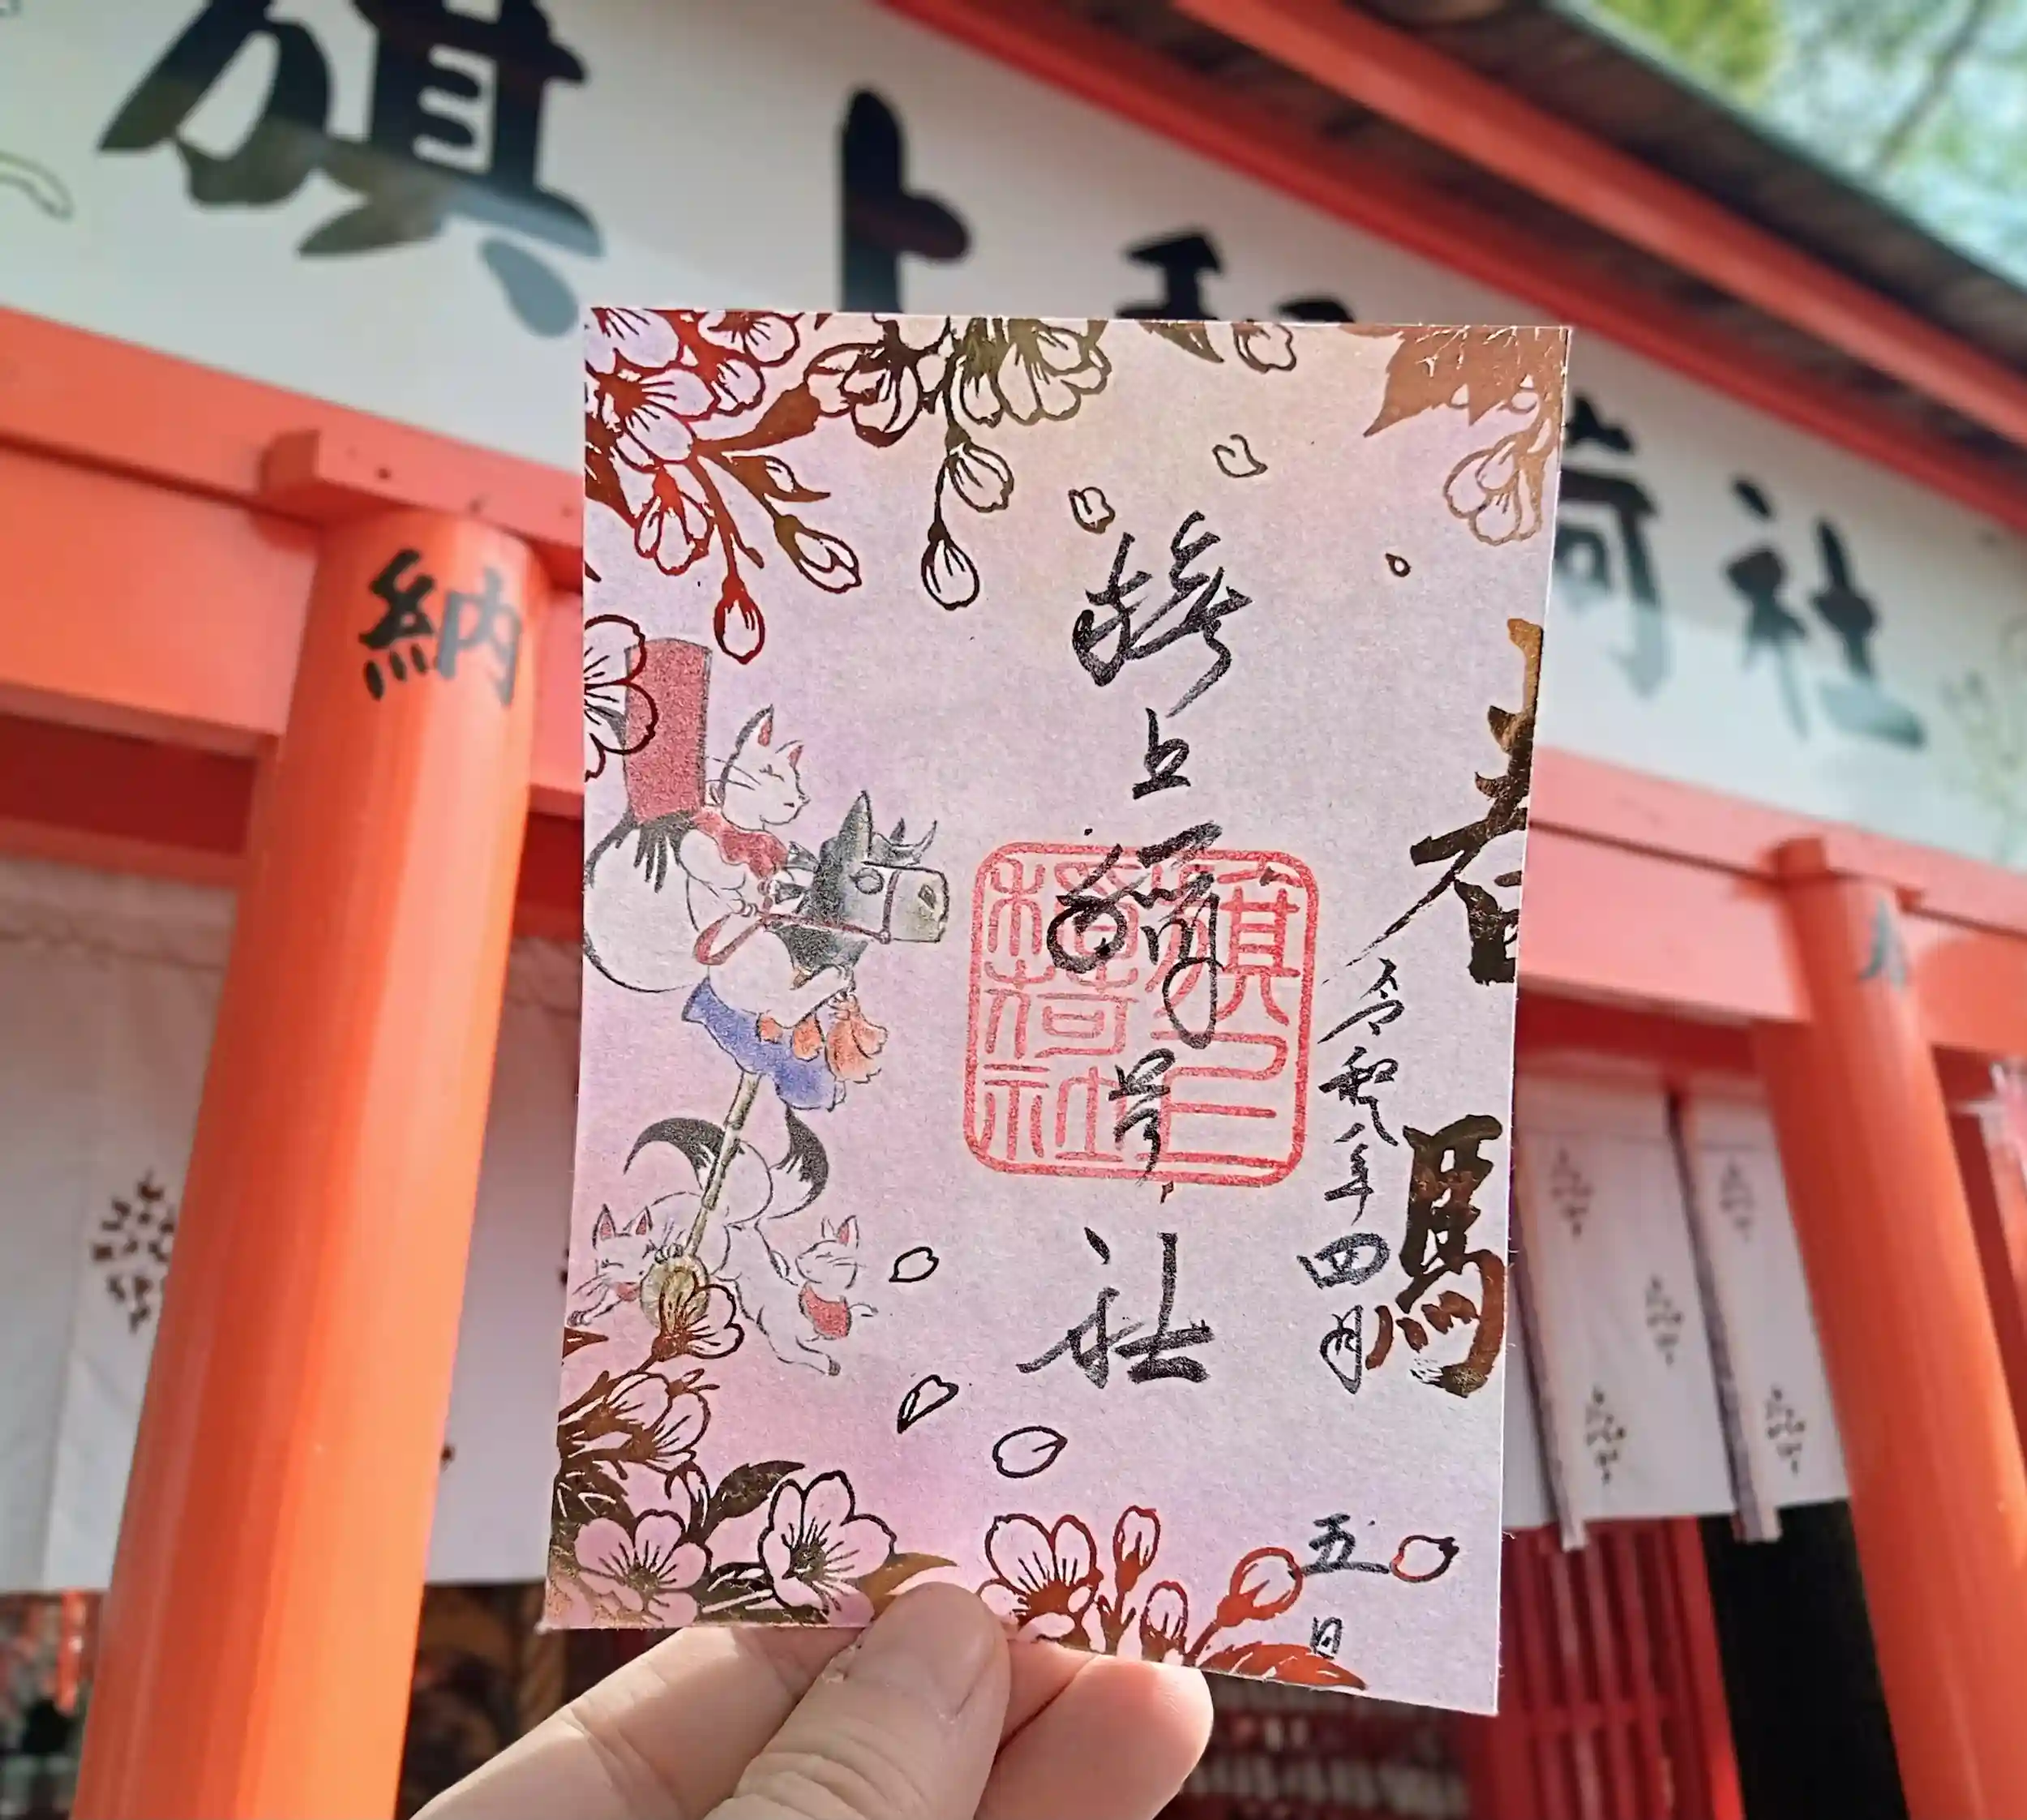 旗上稲荷社
納
春
駒
旗上稲荷社
旗上稲荷社
令和八年四月五日